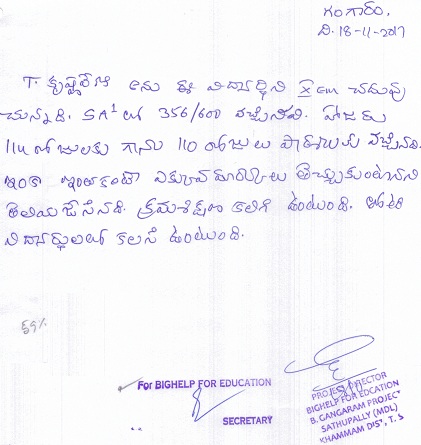 గంగారం,
ది. 18-11-2017
T. కృష్ణవేణి అను ఈ విద్యార్థిని X cm చదువు
చున్నది. SA1 లో 356/600 వచ్చినవి. హాజరు
114 రోజులకు గాను 110 రోజులు పాఠశాలకు వచ్చినది.
ఇంకా ఇంతకంటా ఎక్కువ మార్కులు తెచ్చుకుంటానని
తెలియజేసినది. క్రమశిక్షణ కలిగి ఉంటుంది. తోటి
విద్యార్థులతో కలసి ఉంటుంది.
59%
For BIGHELP FOR EDUCATION
SECRETARY
PROJECT DIRECTOR
BIGHELP FOR EDCATION
B. GANGARAM PROJECT
SATHUPALLY (MDL)
KHAMMAM DIST, T. S